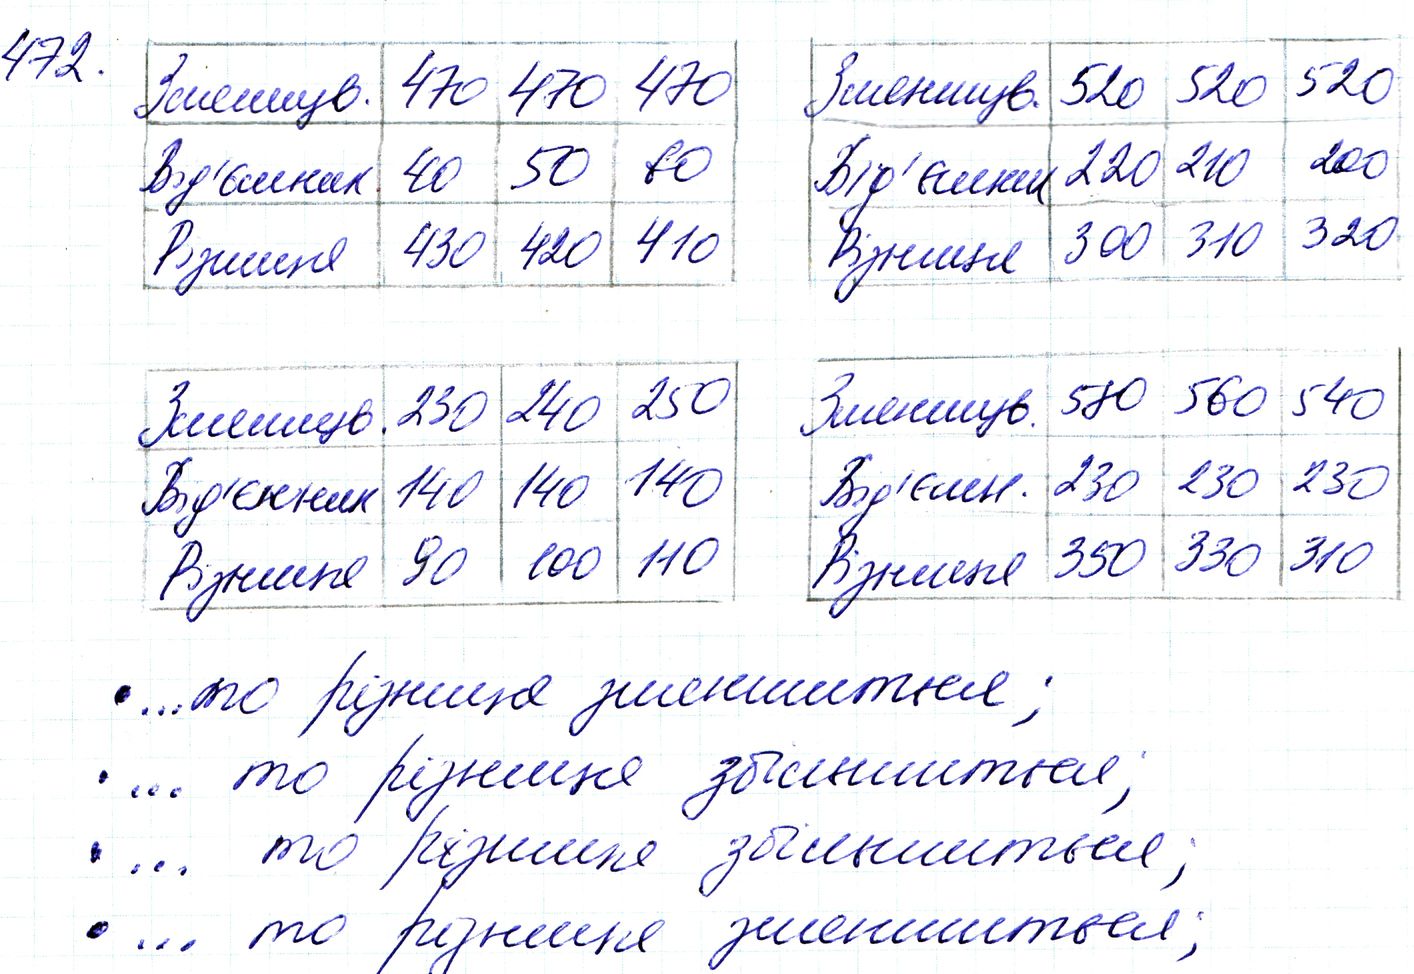 472.
Зменшув. 470 470 470
Від'ємник 40 50 60
Різниця 430 420 410
Зменшув. 520 520 520
Від'ємник 220 210 200
Різниця 300 310 320
Зменшув. 230 240 250
Від'ємник 140 140 140
Різниця 90 100 110
Зменшув. 580 560 540
Від'ємн. 230 230 230
Різниця 350 330 310
• ...то різниця зменшиться;
• ... то різниця збільшиться;
• ... то різниця збільшиться;
• ... то різниця зменшиться;